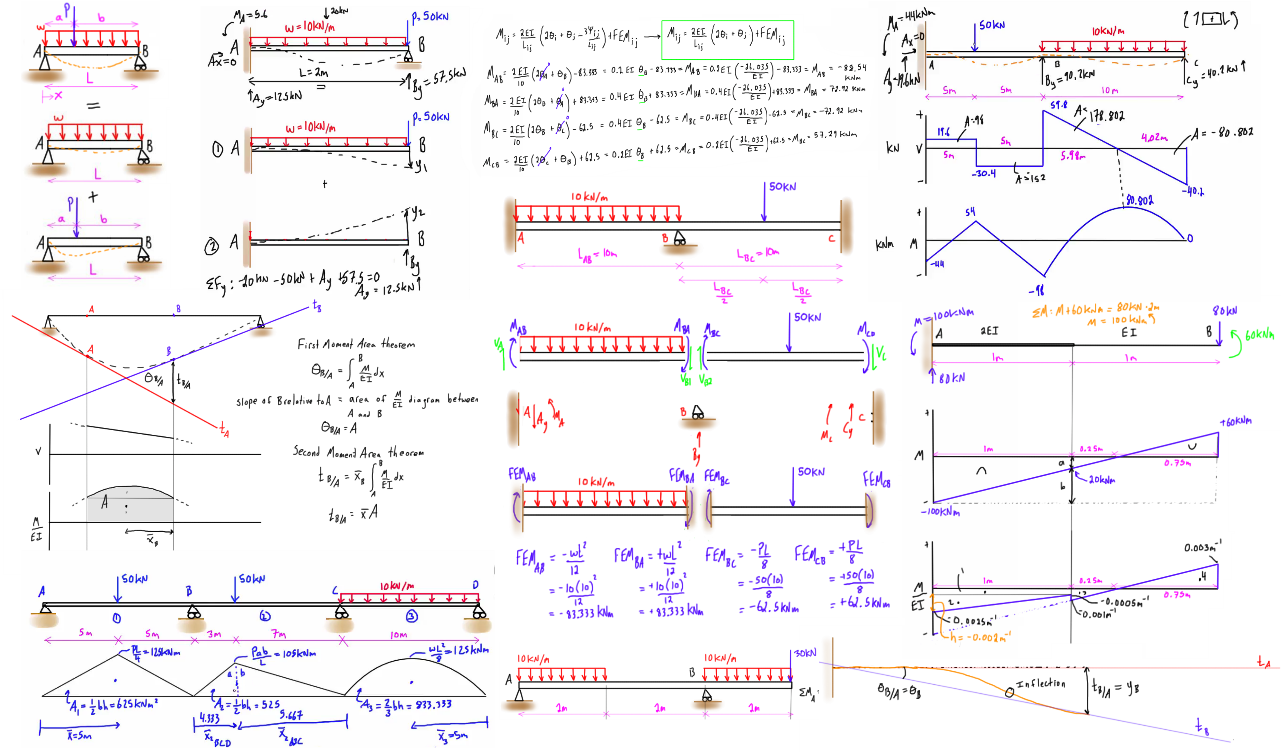 P
a
b
w
A
B
L
x
=
A
B
L
+
P
a
b
A
B
L
M_A=5.6
↓20kN
w=10kN/m
P=50kN
A
B
Ax=0
L=2m
Ay=12.5kN
By=57.5kN
=
①
w=10kN/m
P=50kN
A
B
y₁
+
②
A
y₂
B
By
ΣFy: -20kN -50kN + Ay +57.5=0
Ay=12.5kN↑
M_ij = 2EI/L_ij (2θi + θj -3Ψij/L_ij)+FEM_ij → M_ij = 2EI/L_ij (2θi + θj)+FEM_ij
M_AB = 2EI/10 (2θA + θB) -83.333 = 0.2EI θB -83.333 = M_AB = 0.2EI(-26.035/EI) -83.333 = M_AB = -88.54 kNm
M_BA = 2EI/10 (2θB + θA) + 83.333 = 0.4EI θB + 83.333 = M_BA = 0.4EI(-26.035/EI) +83.333 = M_BA = 72.92 kNm
M_BC = 2EI/10 (2θB + θC) -62.5 = 0.4EI θB -62.5 = M_BC = 0.4EI(-26.035/EI) -62.5 = M_BC = -72.92 kNm
M_CB = 2EI/10 (2θC + θB) +62.5 = 0.2EI θB +62.5 = M_CB = 0.2EI(-26.035/EI) +62.5 = M_BC = 57.29 kNm
10kN/m
50KN
A
B
C
L_AB=10m
L_BC=10m
L_BC/2
L_BC/2
M_A=44kN
50KN
10KN/m
Ax=0
A
B
C
Ay=19.6kN
By=90.2kN
Cy=40.2kN↑
5m
5m
10m
+
KN V
-
19.6
A=98
5m
-30.4
5m
A=-152
59.8
A=178.802
5.98m
4.02m
A=-80.802
-40.2
+
KNm M
-
-44
54
-98
80.802
0
A
B
t_B
A
B
θB/A
tB/A
t_A
V
M/EI
A
x̄_B
First Moment Area theorem
θB/A = ∫_A^B M/EI dx
slope of B relative to A = area of M/EI diagram between
A and B
θB/A = A
Second Moment Area theorem
tB/A = x̄_B ∫_A^B M/EI dx
tB/A = x̄ A
M_AB
10 KN/m
M_BA
M_BC
50KN
M_CD
V_A
V_B1
V_B2
V_C
A
Ay
M_A
B
By
M_C
Cy
C
FEM_AB
10 KN/m
FEM_BA
FEM_BC
50KN
FEM_CB
FEM_AB = -wL²/12
= -10(10)²/12
= -83.333 kNm
FEM_BA = +wL²/12
= +10(10)²/12
= +83.333 kNm
FEM_BC = -PL/8
= -50(10)/8
= -62.5kNm
FEM_CB = +PL/8
= +50(10)/8
= +62.5kNm
ΣM: M+60kNm = 80kN·2m
M = 100kNm
M=100kNm
A
2EI
EI
B
80kN
60kNm
1m
1m
80KN
+
M
-
1m
0.25m
0.75m
+60kNm
a
b
20kNm
-100KNm
+
M/EI
-
1m
0.25m
0.75m
0.003m⁻¹
1
2
3
4
-0.0005m⁻¹
0.001m⁻¹
0.0025m⁻¹
h=-0.002m⁻¹
A
50kN
B
50kN
C
10KN/m
D
①
②
③
5m
5m
3m
7m
10m
PL/4=125kNm
Pab/L=105kNm
wL²/8=125kNm
a
b
A₁=1/2bh=625kNm²
A₂=1/2bh=525
A₃=2/3bh=833.333
x̄=5m
4.333
x̄2BCD
5.667
x̄2ABC
x̄₃=5m
10KN/m
10KN/m
30KN
A
B
ΣM_A:
2m
2m
2m
t_A
θB/A=θB
Inflection
tB/A=yB
t_B